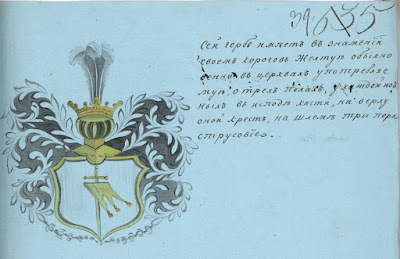 39. 635
Сей гербъ имѣетъ въ знаменіи
своемъ хорогов желтую обыкно
венно въ церквахъ употребляе
мую, о трехъ полахъ, у каждой
въ исподи кисти, на верху
оной крестъ, на шлемѣ три пера
струсовіе.